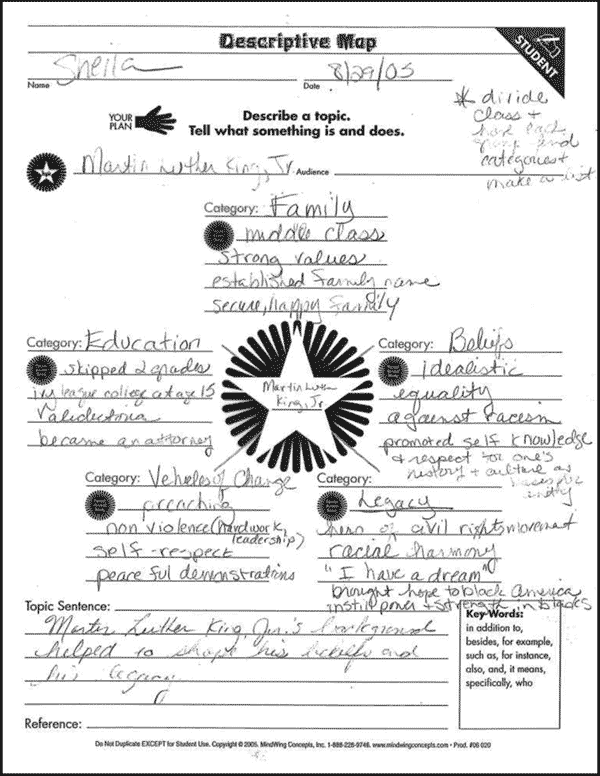 Descriptive Map
STUDENT
Sheila
8/29/05
Name
Date
YOUR PLAN
Describe a topic.
Tell what something is and does.
* divide
class +
have each
group
categories +
make a list
Martin Luther King, Jr. Audience
Category: Family
middle class
strong values
established family name
secure, happy family
Category: Education
skipped 2 grades
ivy league college at age 15
Validictorian
became an attorney
Martin Luther
King, Jr
Category: Beliefs
idealistic
equality
against racism
promoted self knowledge
+ respect for one's
history + culture as
Category: Vehicles of Change
preaching
non violence (hard work,
leadership)
self-respect
peaceful demonstrations
Category:
Legacy
hero of civil rights movement
racial harmony
"I have a dream"
brought hope to black America
instill power + strength in blacks
Topic Sentence:
Martin Luther King, Jr.'s background
helped to shape his beliefs and
his legacy
Key Words:
in addition to,
besides, for example,
such as, for instance,
also, and, it means,
specifically, who
Reference:
Do Not Duplicate EXCEPT for Student Use. Copyright © 2005. MindWing Concepts, Inc. 1-888-228-9746. www.mindwingconcepts.com • Prod. #06 020